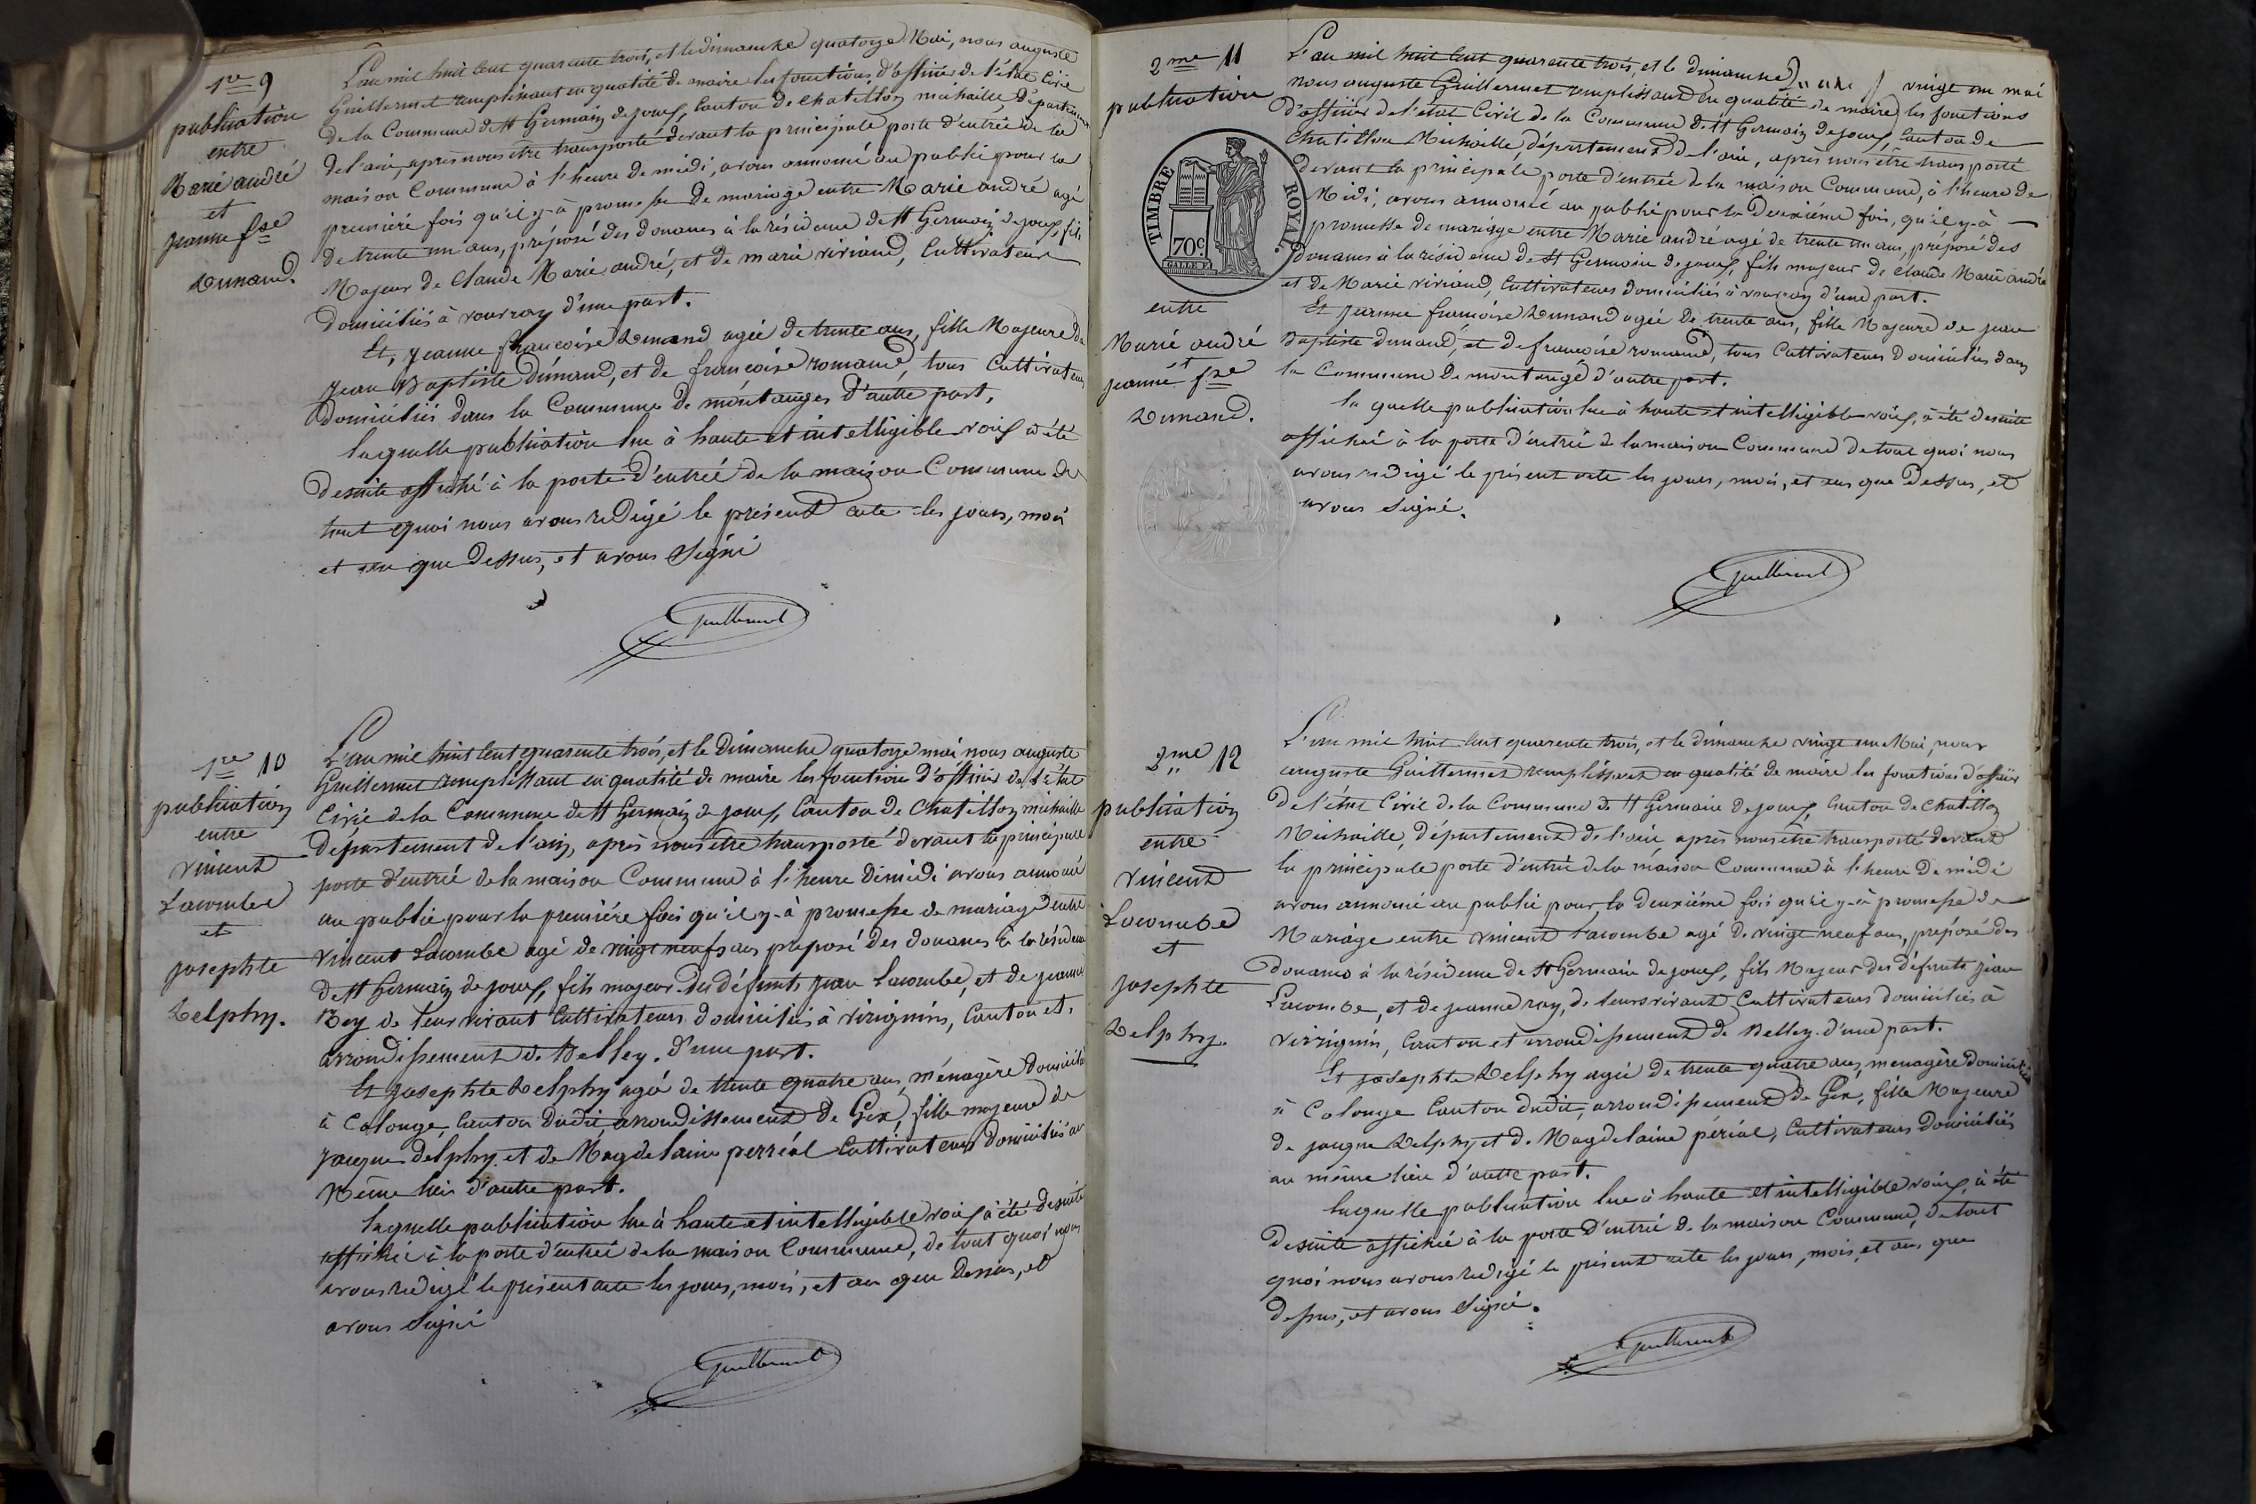 1re 9
publication
entre
Marie andré
et
jeanne fse
Dunand.
L'an mil huit cent quarante trois, et le dimanche quatorze Mai, nous auguste
Guillermet remplissant en qualité de maire les fonctions d'officier de l'état Civil
de la Commune de St Germain de joux, Canton de Chatillon michaille, département
de l'ain, après nous être transporté devant la principale porte d'entrée de la
maison Commune à l'heure de midi, avons annoncé au public pour la
première fois qu'il y-à promesse de mariage entre Marie andré agé
de trente un ans, préposé des douanes à la résidence de St Germain de joux, fils
Majeur de Claude Marie andré, et de marie viviand, Cultivateurs
domiciliés à vouvray d'une part.
Et, jeanne francoise Dunand agée de trente ans, fille Majeure de
jean Baptiste dunand, et de francoise romand, tous Cultivateurs
domiciliés dans la Commune de montanges d'autre part.
laquelle publication lue à haute et intelligible voix à été
desuite affiché à la porte d'entrée de la maison Commune de
tout quoi nous avons redigé le présent acte les jours, mois
et an que dessus, et avons signé
Guillermet
1re 10
publication
entre
vincent
Lacombe
et
josephte
Delphy.
L'an mil huit cent quarante trois, et le Dimanche quatorze mai, nous auguste
Guillermet remplissant en qualité de maire les fonctions d'officier de l'état
Civil de la Commune de St Germain de joux, Canton de Chatillon michaille
département de l'ain, après nous être transporté devant la principale
porte d'entrée de la maison Commune à l'heure de midi avons annoncé
au public pour la première fois qu'il y-à promesse de mariage entre
vincent Lacombe agé de vingt neufs ans préposé des douanes à la résidence
de St Germain de joux, fils majeur des défunts jean Lacombe, et de jeanne
Rey de leur vivant Cultivateurs domiciliés à virignin, Canton et
arrondissement de Belley. d'une part.
Et josephte Delphy agée de trente quatre ans ménagère domiciliée
à Colonge, Canton dudit, arrondissement de Gex, fille majeure de
jacque delphy et de Magdelaine perréal Cultivateurs domiciliés au
même lieu d'autre part.
laquelle publication lue à haute et intelligible voix à été desuite
affichée à la porte d'entrée de la maison Commune, de tout quoi nous
avons redigé le présent acte les jours, mois, et an que dessus, et
avons signé
Guillermet
2me 11
publication
TIMBRE ROYAL.
70c
entre
Marie andré
et
jeanne fse
Dunand.
L'an mil huit cent quarante trois, et le dimanche vingt un mai
nous auguste Guillermet remplissant en qualité de maire les fonctions
d'officier de l'état Civil de la Commune de St Germain de joux, Canton de
Chatillon Michaille, département de l'ain, après nous être transporté
devant la principale porte d'entrée de la maison Commune, à l'heure de
Midi, avons annoncé au public pour la Deuxième fois, qu'il y-à
promesse de mariage entre Marie andré agé de trente un ans, préposé des
douanes à la résidence de St Germain de joux, fils majeur de claude Marie andré
et de Marie viviand, Cultivateurs domiciliés à vouvray d'une part.
Et jeanne francoise Dunand agée de trente ans, fille Majeure de jean
Baptiste dunand, et de francoise romand, tous Cultivateurs domiciliés dans
la Commune de montange d'autre part.
la quelle publication lue à haute et intelligible voix, à été desuite
affiché à la porte d'entrée de la maison Commune de tout quoi nous
avons redigé le présent acte les jours, mois, et an que dessus, et
avons signé.
Guillermet
2me 12
publication
entre
vincent
Lacombe
et
josephte
Delphy.
L'an mil huit cent quarante trois, et le dimanche vingt un Mai, nous
auguste Guillermet remplissant en qualité de maire les fonctions d'officier
de l'état Civil de la Commune de St Germain de joux, Canton de Chatillon
Michaille, département de l'ain, après nous être transporté devant
la principale porte d'entrée de la maison Commune à l'heure de midi
avons annoncé au public pour la deuxième fois qu'il y-à promesse de
Mariage entre vincent Lacombe agé de vingt neuf ans, préposé des
douanes à la résidence de St Germain de joux, fils Majeur des défunts jean
Lacombe, et de jeanne rey, de leurs vivant Cultivateurs domiciliés à
virignin, Canton et arrondissement de Belley. d'une part.
Et josephte Delphy agée de trente quatre ans, menagère domiciliée
à Colonge Canton dudit, arrondissement de Gex, fille Majeure
de jacque Delphy et de Magdelaine périal, Cultivateurs domiciliés
au même lieu d'autre part.
laquelle publication lue à haute et intelligible voix, à été
desuite affichée à la porte d'entrée de la maison Commune, de tout
quoi nous avons redigé le présent acte les jours, mois, et an que
dessus, et avons signé.
Guillermet